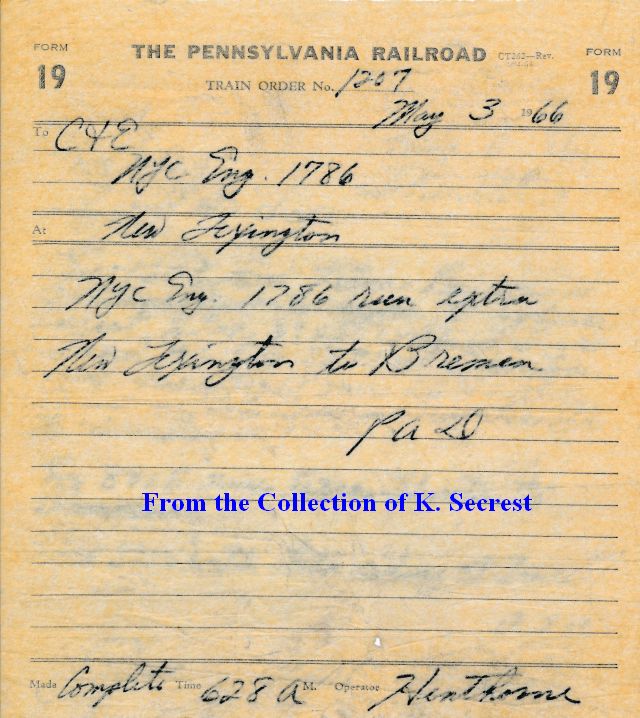 FORM THE PENNSYLVANIA RAILROAD CT262—Rev. FORM
19 TRAIN ORDER No. 1207 19
May 3 1966
To C&E
NYC Eng. 1786
At New Lexington
NYC Eng. 1786 run extra
New Lexington to Bremen
From the Collection of K. Secrest
Made Complete Time 628 A M. Operator Henthorne